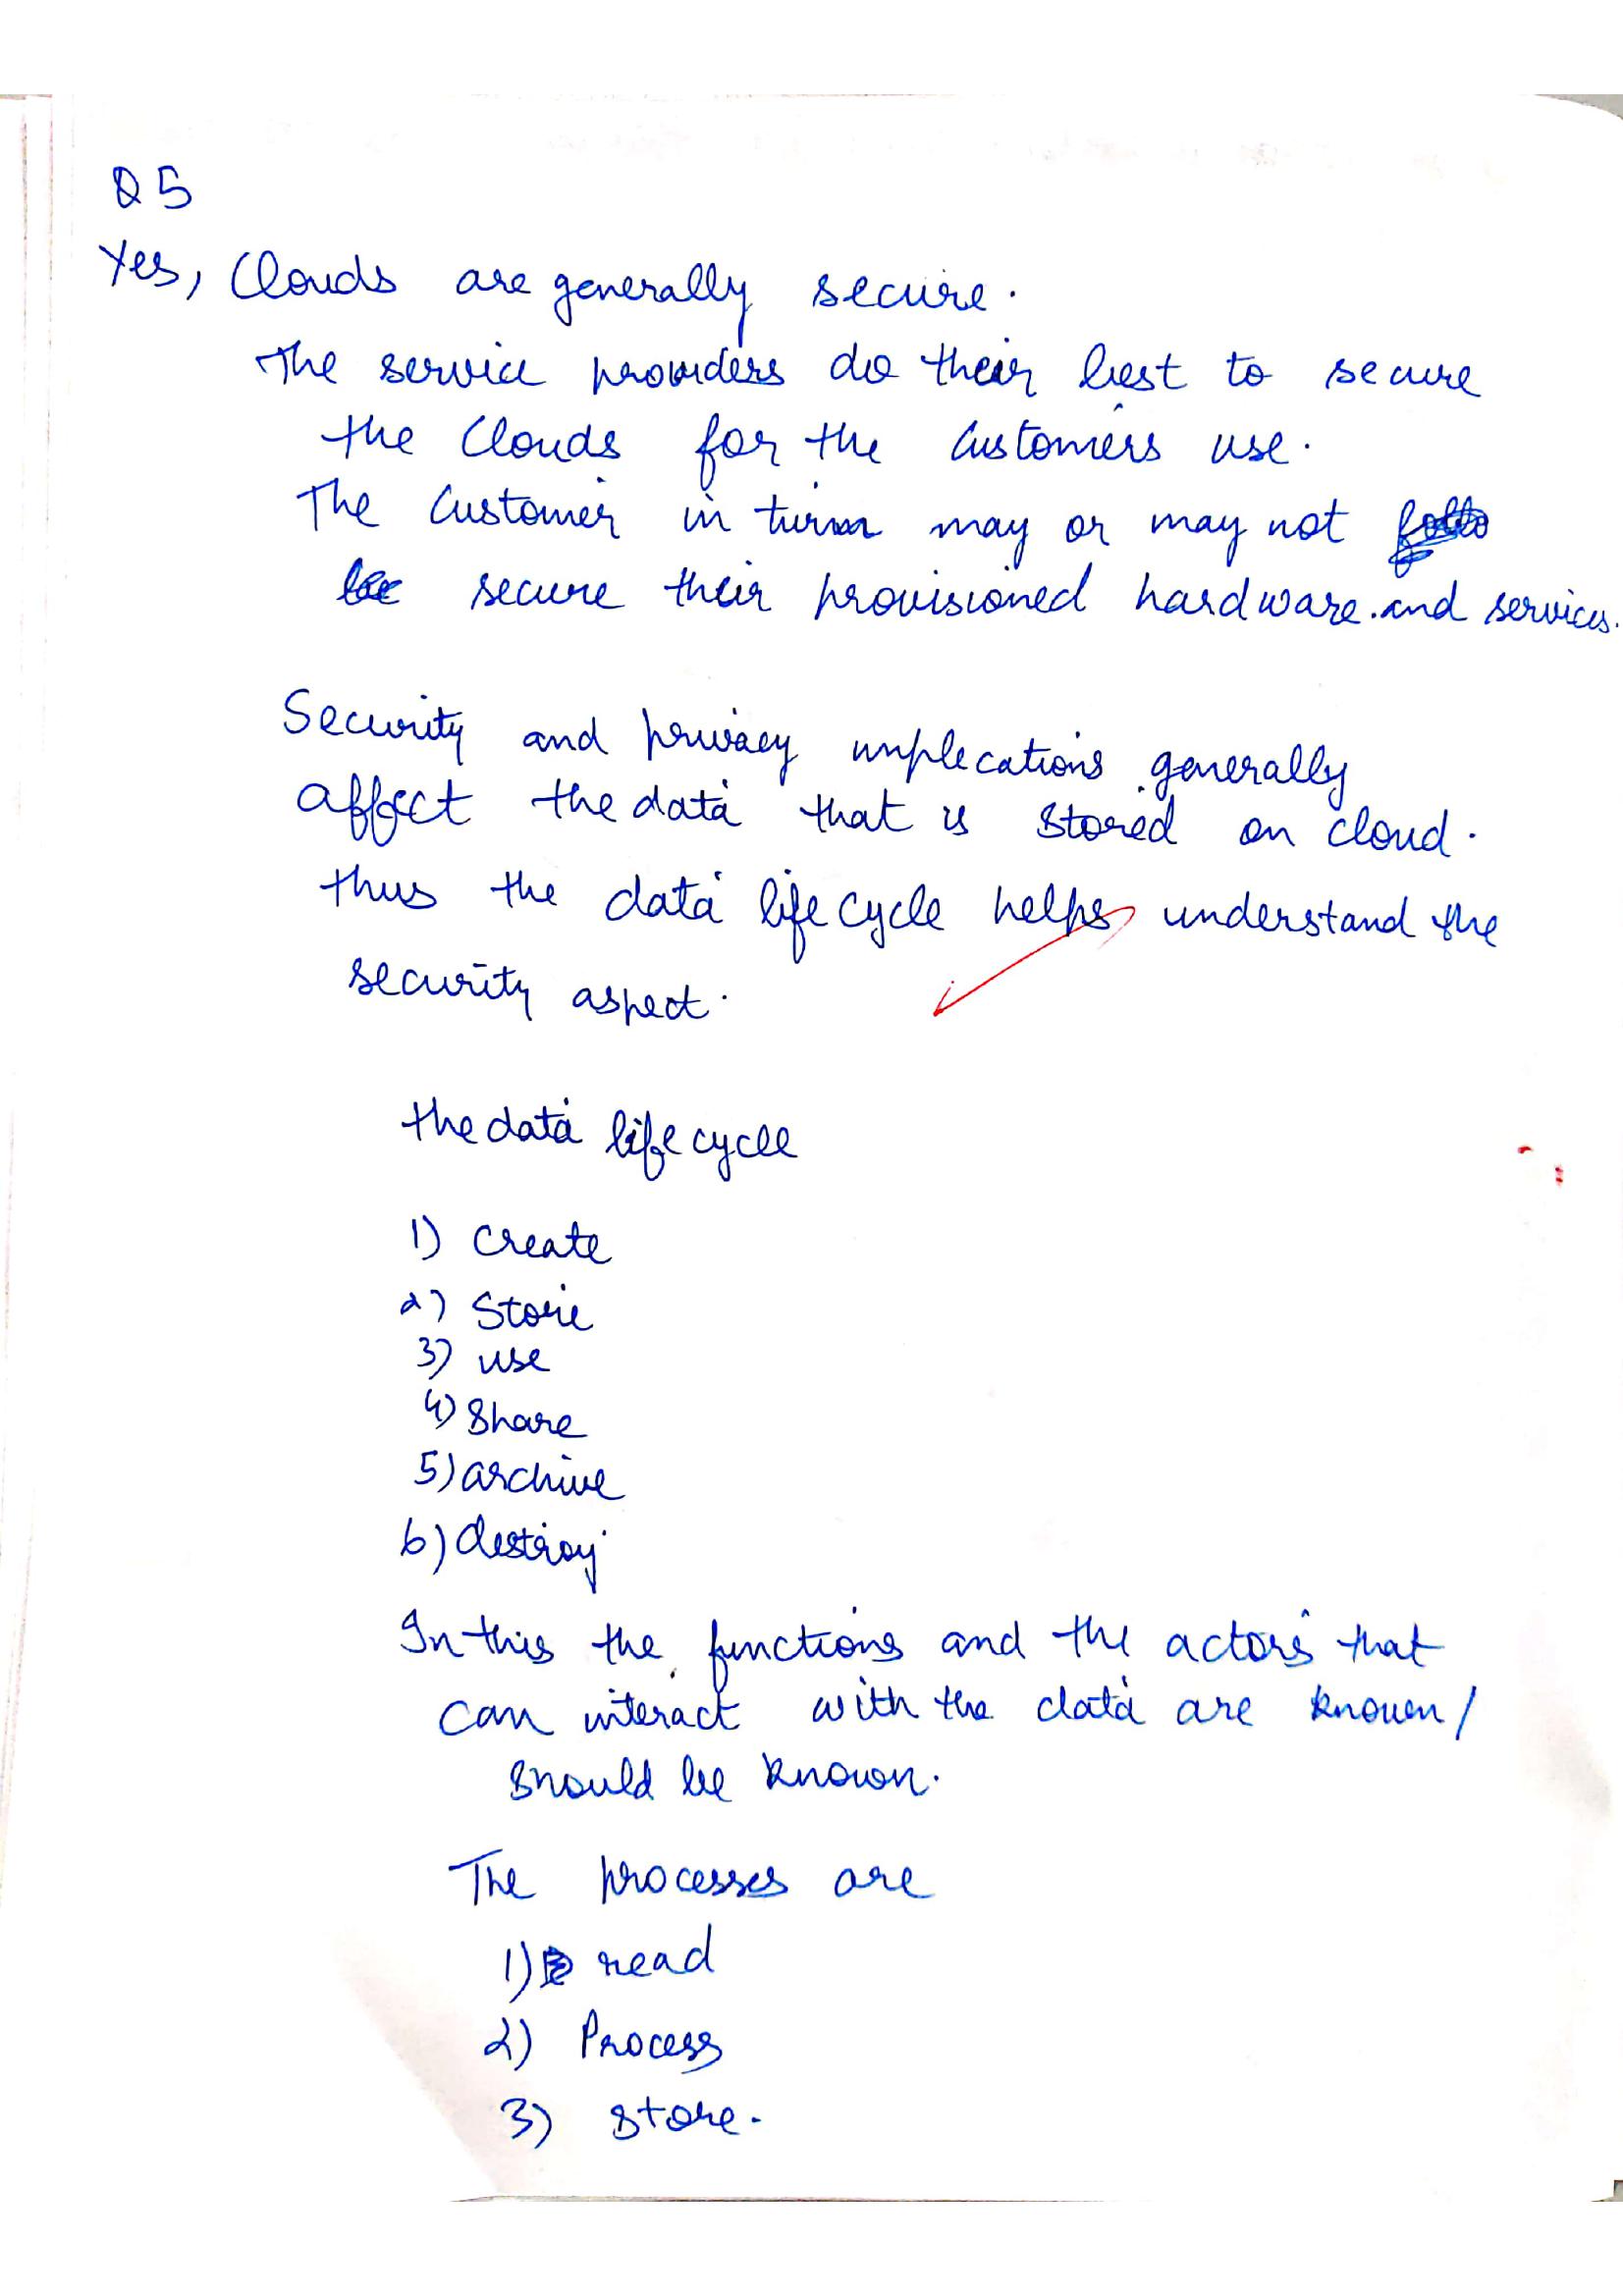 Q5
Yes, Clouds are generally secure.
The service providers do their best to secure
the Clouds for the customers use.
The Customer in turn may or may not
secure their provisioned hardware. and services.
Security and privacy implecations generally
affect the data that is stored on cloud.
thus the data life cycle helps understand the
security aspect.
the data life cycle
1) Create
2) Store
3) use
4) Share
5) archive
6) destroy
In this the functions and the actors that
can interact with the data are known/
should be known.
The processes are
1) read
2) Process
3) store.